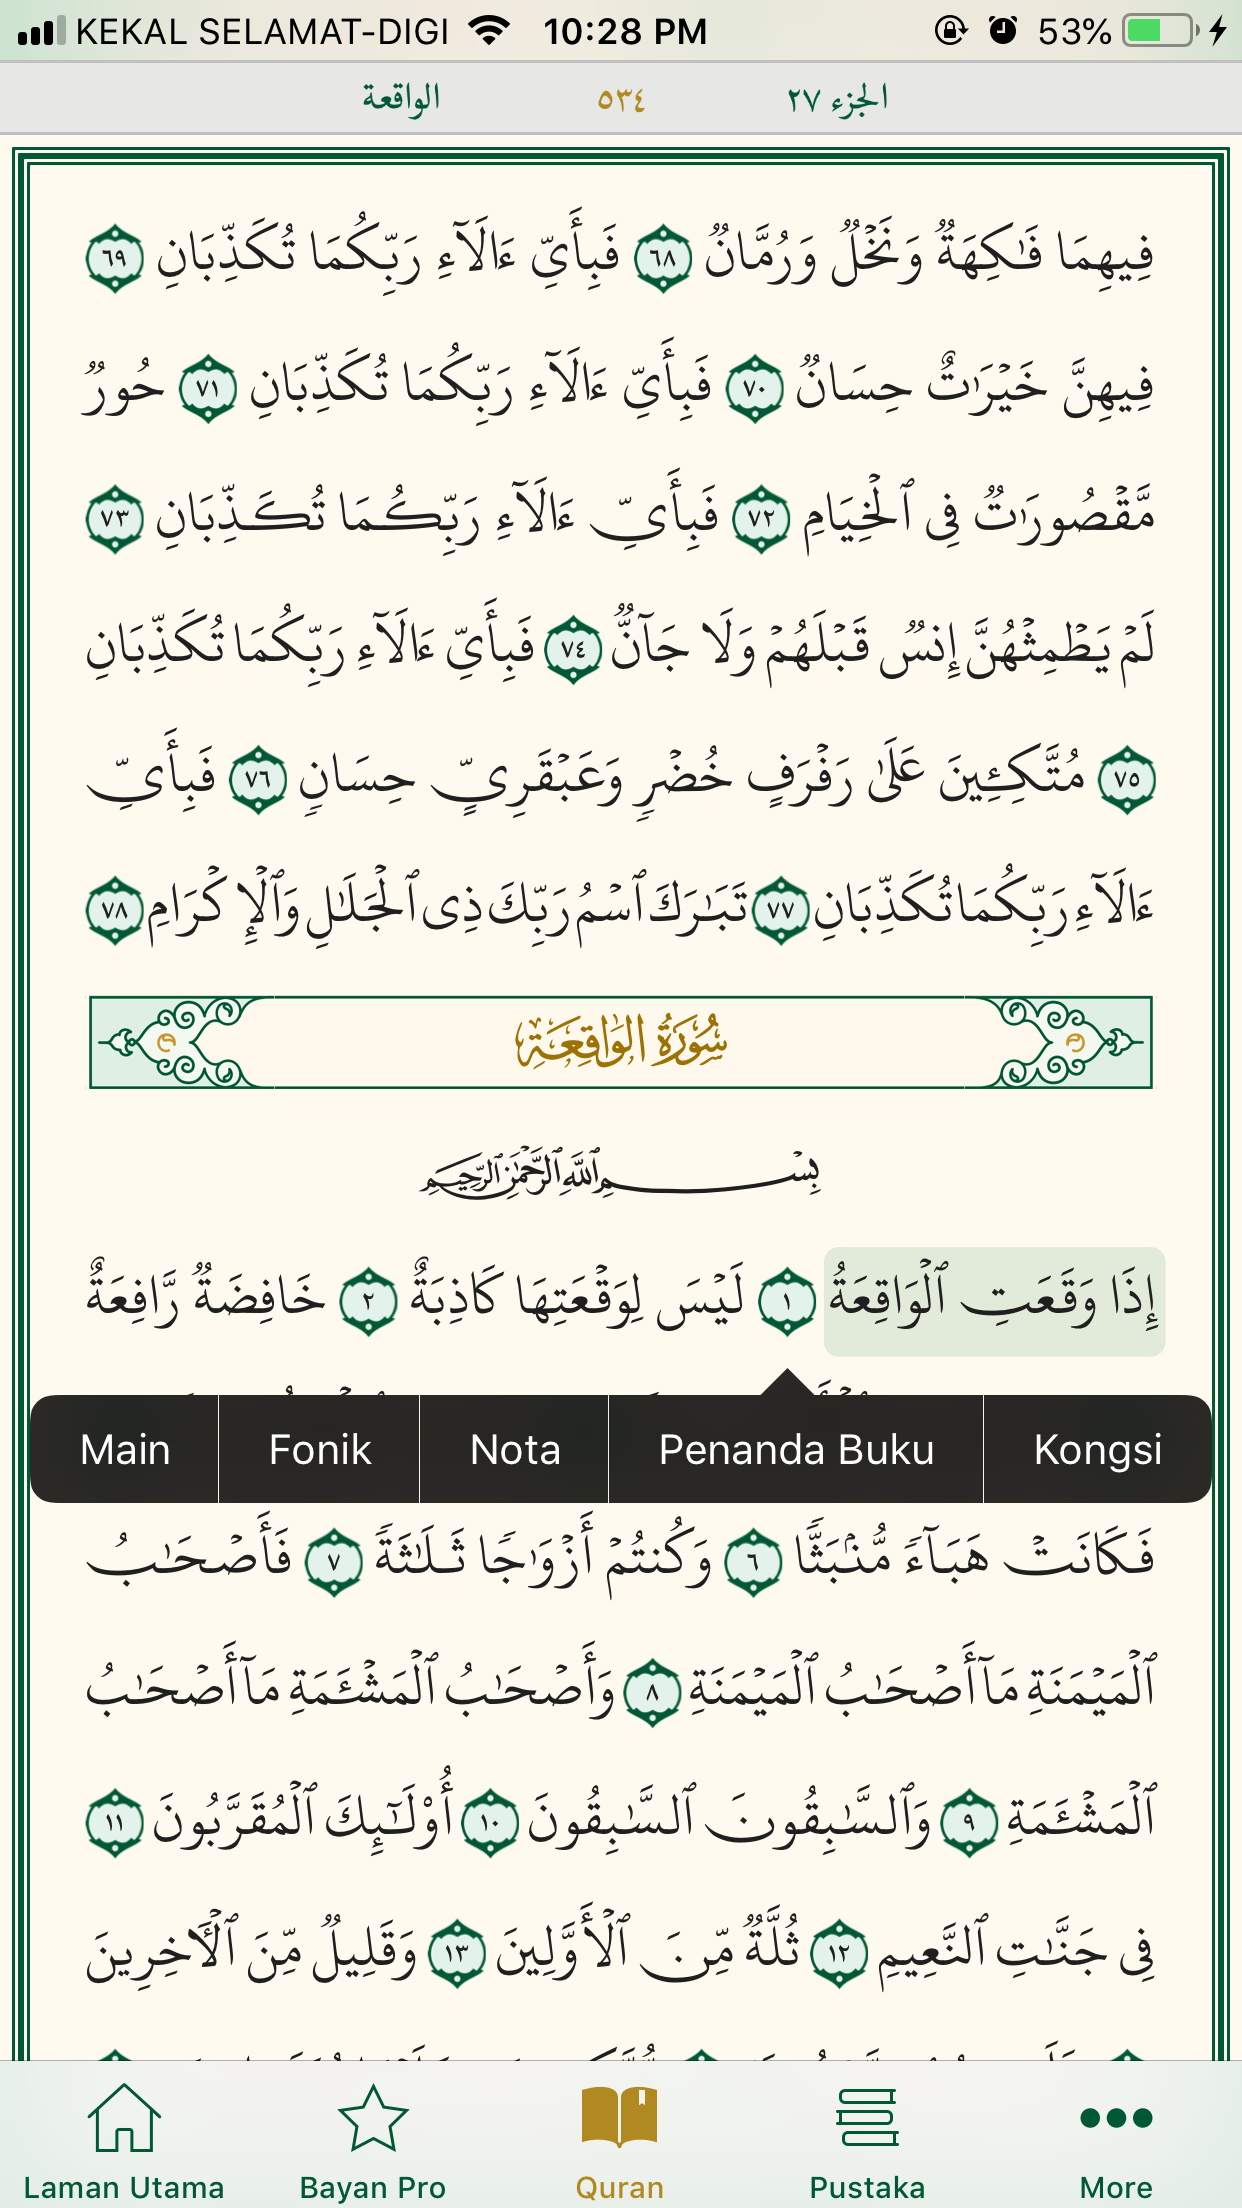 KEKAL SELAMAT-DIGI 10:28 PM 53%
الجزء ٢٧ ٥٣٤ الواقعة
فِيهِمَا فَٰكِهَةٌ وَنَخْلٌ وَرُمَّانٌ ٦٨ فَبِأَيِّ ءَالَآءِ رَبِّكُمَا تُكَذِّبَانِ ٦٩
فِيهِنَّ خَيْرَٰتٌ حِسَانٌ ٧٠ فَبِأَيِّ ءَالَآءِ رَبِّكُمَا تُكَذِّبَانِ ٧١ حُورٌ
مَّقْصُورَٰتٌ فِى ٱلْخِيَامِ ٧٢ فَبِأَيِّ ءَالَآءِ رَبِّكُمَا تُكَذِّبَانِ ٧٣
لَمْ يَطْمِثْهُنَّ إِنسٌ قَبْلَهُمْ وَلَا جَآنٌّ ٧٤ فَبِأَيِّ ءَالَآءِ رَبِّكُمَا تُكَذِّبَانِ
٧٥ مُتَّكِـِٔينَ عَلَىٰ رَفْرَفٍ خُضْرٍ وَعَبْقَرِىٍّ حِسَانٍ ٧٦ فَبِأَيِّ
ءَالَآءِ رَبِّكُمَا تُكَذِّبَانِ ٧٧ تَبَٰرَكَ ٱسْمُ رَبِّكَ ذِى ٱلْجَلَٰلِ وَٱلْإِكْرَامِ ٧٨
سُورَةُ الوَاقِعَةِ
بِسْمِ ٱللَّهِ ٱلرَّحْمَٰنِ ٱلرَّحِيمِ
إِذَا وَقَعَتِ ٱلْوَاقِعَةُ ١ لَيْسَ لِوَقْعَتِهَا كَاذِبَةٌ ٢ خَافِضَةٌ رَّافِعَةٌ
Main Fonik Nota Penanda Buku Kongsi
فَكَانَتْ هَبَآءً مُّنۢبَثًّا ٦ وَكُنتُمْ أَزْوَٰجًا ثَلَٰثَةً ٧ فَأَصْحَٰبُ
ٱلْمَيْمَنَةِ مَآ أَصْحَٰبُ ٱلْمَيْمَنَةِ ٨ وَأَصْحَٰبُ ٱلْمَشْـَٔمَةِ مَآ أَصْحَٰبُ
ٱلْمَشْـَٔمَةِ ٩ وَٱلسَّٰبِقُونَ ٱلسَّٰبِقُونَ ١٠ أُوْلَٰٓئِكَ ٱلْمُقَرَّبُونَ ١١
فِى جَنَّٰتِ ٱلنَّعِيمِ ١٢ ثُلَّةٌ مِّنَ ٱلْأَوَّلِينَ ١٣ وَقَلِيلٌ مِّنَ ٱلْـَٔاخِرِينَ
Laman Utama Bayan Pro Quran Pustaka More